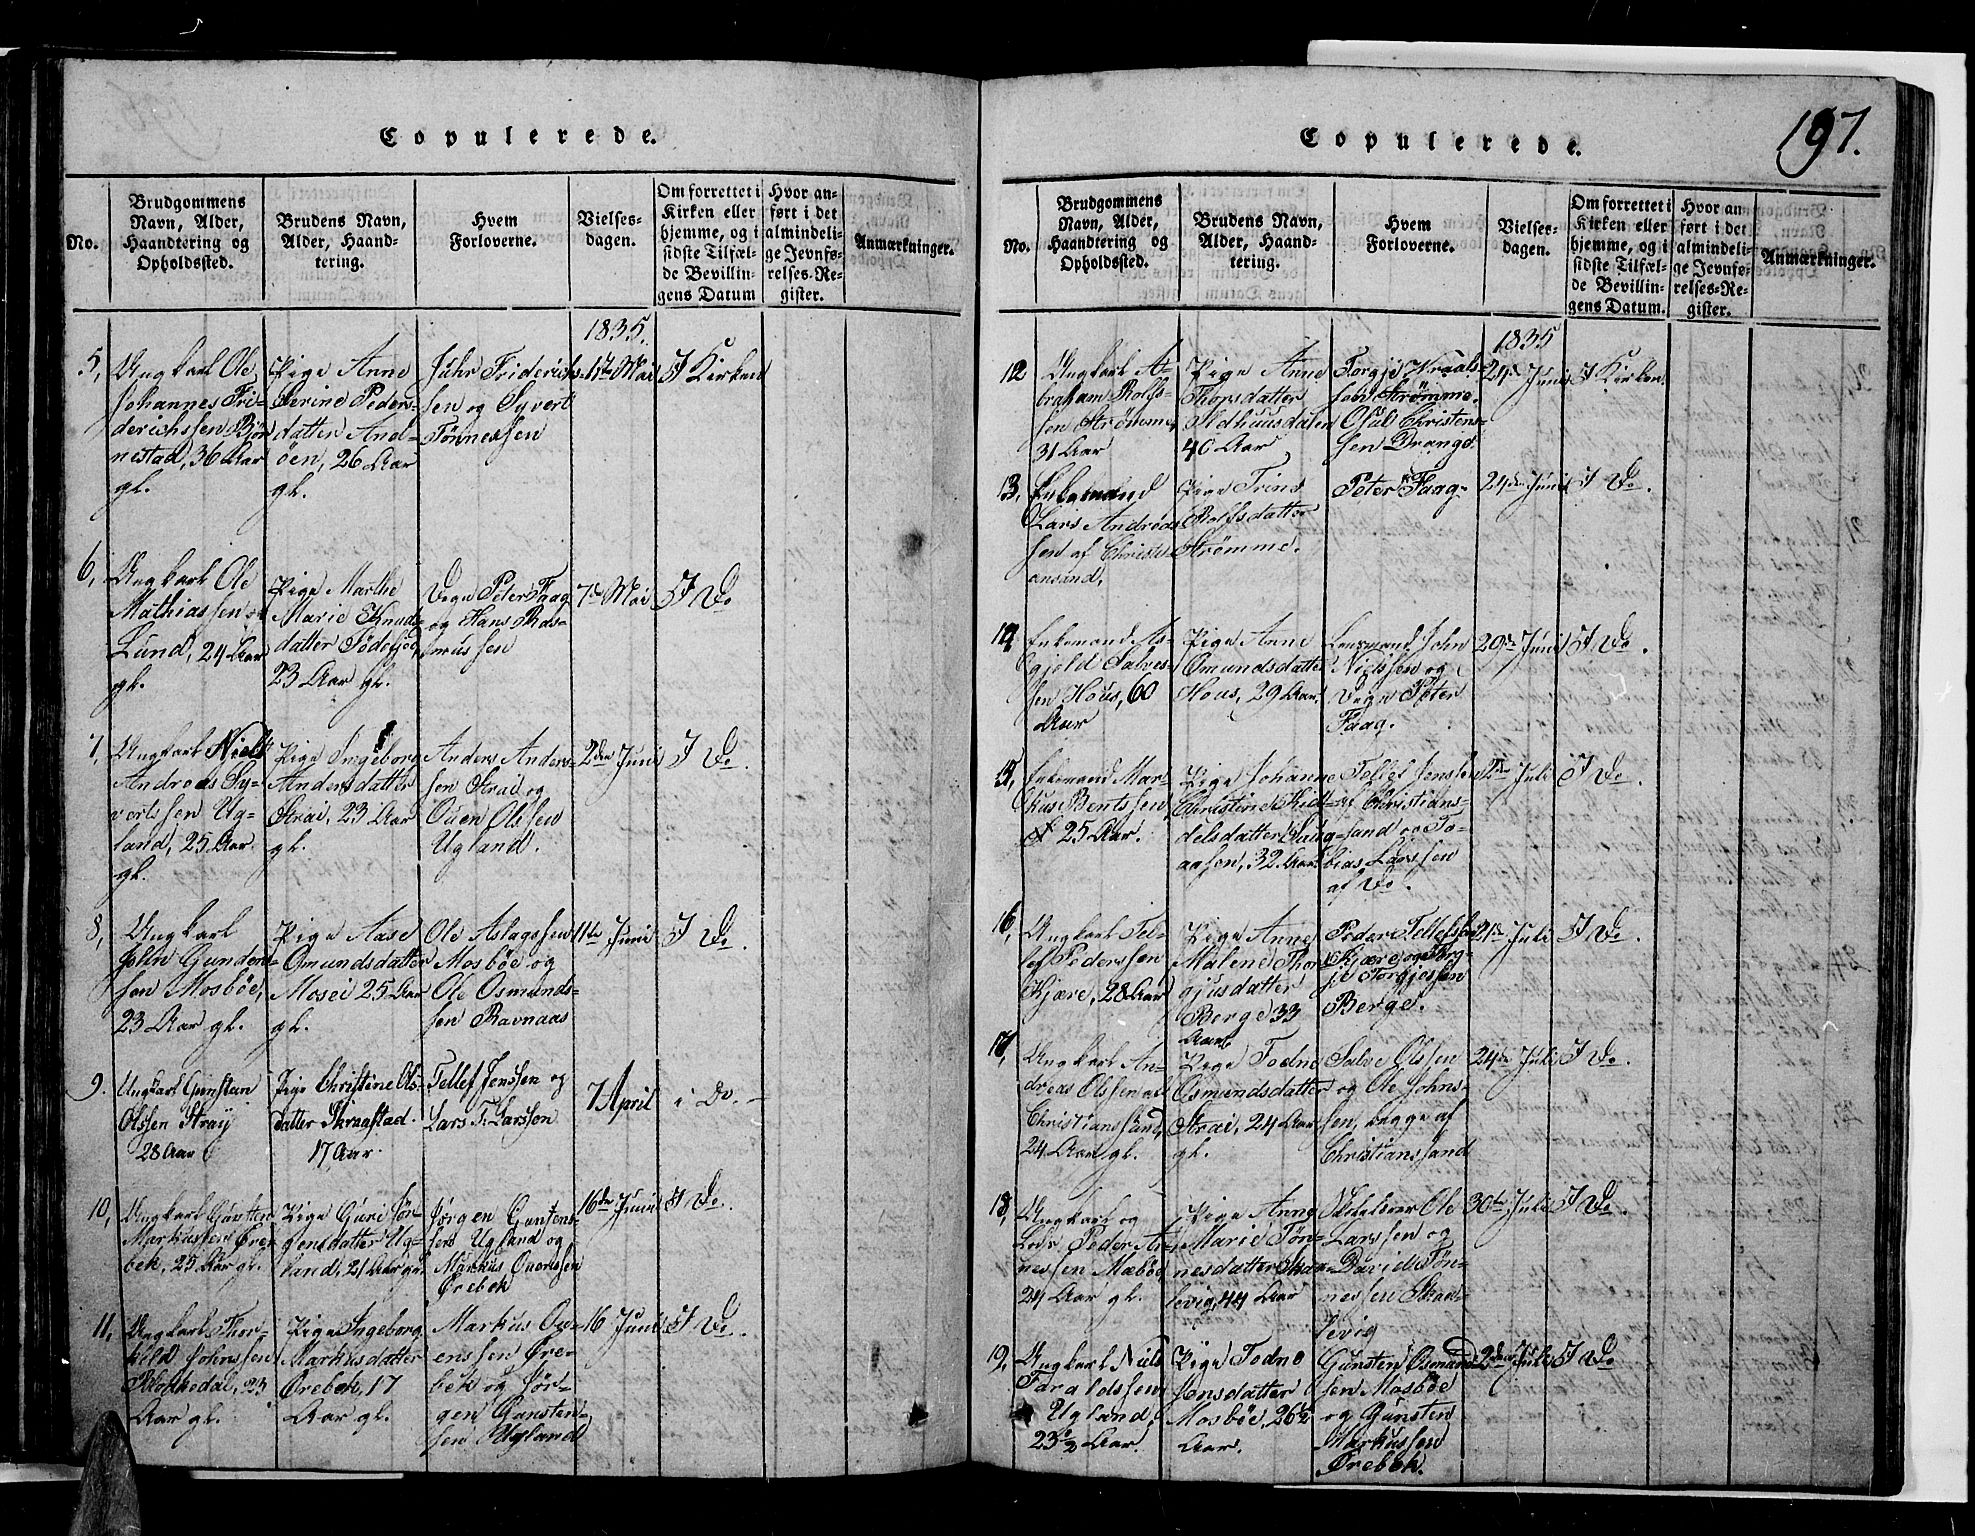 197.
Copulerede.
No.
Brudgommens
Navn, Alder,
Haandtering og
Opholdssted.
Brudens Navn,
Alder, Haand-
tering.
Hvem
Forloverne.
Vielses-
dagen.
Om forrettet i
Kirken eller
hjemme, og i
sidste Tilfæl-
de Bevillin-
gens Datum
Hvor an-
ført i det
almindeli-
ge Jevnfø-
relses-Re-
gister.
Anmærkninger.
1835.
5,
Ungkarl Ole
Johannes Fri-
derichssen Bjør
nestad, 36 Aar
gl.
Pige Anne
Serine Peders-
datter And-
øen, 26 Aar
gl.
Juhr Friderich-
sen og Syvert
Tønnessen
17de Mai
I Kirken
6,
Ungkarl Ole
Mathiassen
Lund, 24 Aar
gl.
Pige Marthe
Marie Knuds-
datter
23 Aar gl.
Peter Faag
og Hans Ras-
mussen
7de Mai
I Do
7,
Ungkarl Niels
Andreas Sy-
vertssen Ug-
land, 25 Aar
gl.
Pige Ingeborg
Andersdatter
Strai, 23 Aar
gl.
Anders Anders-
sen Strai og
Ouen Olssen
Ugland.
2den Juni
I Do.
8,
Ungkarl
John Gunders-
sen Mosbøe,
23 Aar gl.
Pige Aase
Omundsdatter
Mosei 25 Aar
gl.
Ole Aslagssen
Mosbøe og
Ole Osmunds-
sen Ravnaas
11te Juni
I Do.
9.
Ungkarl Gunstan
Olssen Straij
28 Aar
Pige Christine Ols-
datter Skraastad.
17 Aar.
Tellef Jenssen og
Lars T. Larsson
7 April
i Do. -
10,
Ungkarl Gunsten
Markussen Øre
bek, 25 Aar gl.
Pige Guri Jør-
gensdatter Ug-
land, 21 Aar gl.
Jørgen Gunstens-
sen Ugland og
Markus Ouenssen
Ørebek
16de Juni
I Do.
11,
Ungkarl Thor-
kild Johnssen
23
Aar gl.
Pige Ingeborg
Markusdatter
Ørebek, 17
Aar gl.
Markus Ou-
enssen Øre-
bek og Jør-
gen Gunsten-
sen Ugland
16 Juni
I Do.
Copulerede.
No.
Brudgommens
Navn, Alder,
Haandtering og
Opholdssted.
Brudens Navn,
Alder, Haand-
tering.
Hvem
Forloverne.
Vielses-
dagen.
Om forrettet i
Kirken eller
hjemme, og i
sidste Tilfæl-
de Bevillin-
gens Datum.
Hvor an
ført i det
almindeli-
ge Jevnfø-
relses-Re-
gister.
Anmærkninger.
1835
12
Ungkarl A-
braham Rolfs-
sen Strømme,
31 Aar
Pige Anne
Thorsdatter
40 Aar
Torgje Kraal-
sen Strømme.
Osul Christens-
sen Drange.
24de Juni
I Kirken
13,
Enkemand
Lars Andreas-
sen af Christi-
ansand,
Pige Trine
Rolfsdatter
Strømme.
Peter Faag.
24de Juni
I Do.
14,
Enkemand As-
gjeld Salves-
sen Hous, 60
Aar
Pige Anne
Omundsdatter
Hous, 29 Aar
Lensmand John
Nielssen og
Peter
Faag.
29de Juni
I Do.
15,
Enkemand Mar-
kus Bentssen,
25 Aar.
Pige Johanne
Christine Kid-
delsdatter
aasen, 32 Aar
Tellef Jenssen
af Christians-
sand og To-
bias Larssen
af Do.
2den Juli
I Do.
16,
Ungkarl Tel-
lef Pederssen
Kjære, 28 Aar
Pige Anne
Malene Thor-
gjusdatter
Berge 33
Aar
Peder Tellefsen
Kjære og Torg-
je Torgjussen
Berge.
21de Juli
I Do.
17,
Ungkarl An-
dreas Olssen af
Christianssand,
24 Aar gl.
Pige Todne
Osmundsdatter
Strai, 24 Aar
gl.
Salve Olssen
og Ole Johns-
sen, begge af
Christianssand
24de Juli
I Do.
18,
Ungkarl og
Lods Peder An-
nessen Mæbøe
24 Aar gl.
Pige Anne
Marie Tøn-
nesdatter Skaa-
levig, 44 Aar
Skoleholder Ole
Larssen og
David Tøn-
nessen Skaa-
levig
30te Juli
I Do.
19,
Ungkarl Niels
Taraldssen
Ugland
23½ Aar.
Pige Todne
Jensdatter
Mosbøe, 26½
Aar.
Gunsten Osmund-
sen Mosbøe
og Gunsten
Markussen
Ørebek.
2den Juli
I Do